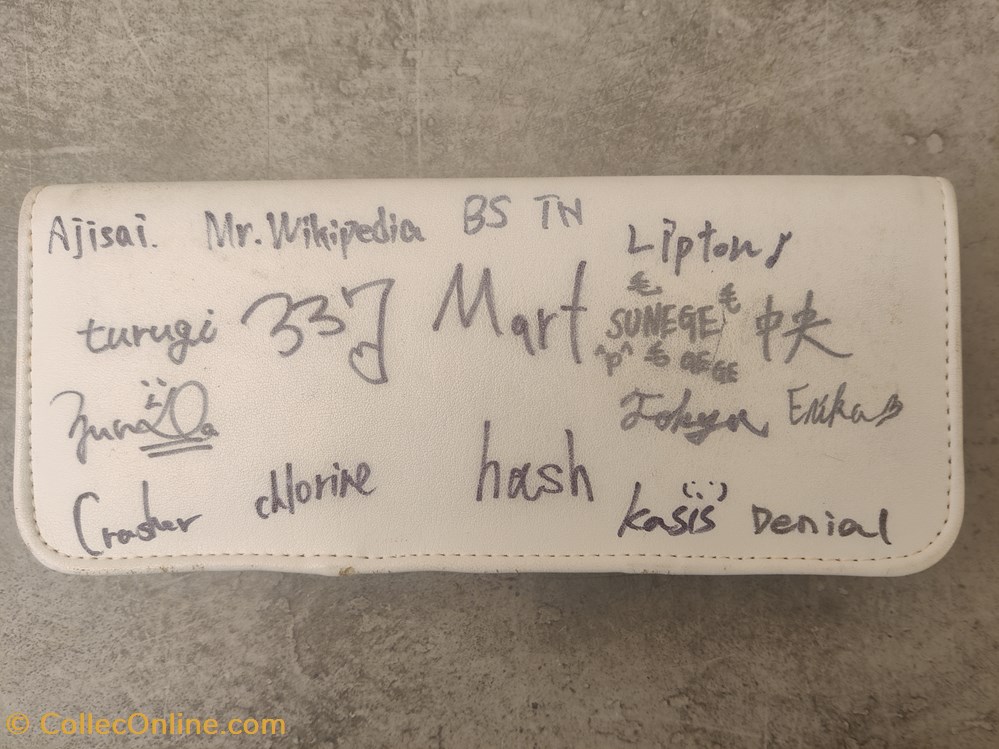 Ajisai. Mr.Wikipedia BS TN
Lipton
turugi 337 Mart SUNEGE 中央
毛 毛
"p" 毛 GEGE
Tokyo Erika
Crasher chlorine hash kasis Denial
© CollecOnline.com